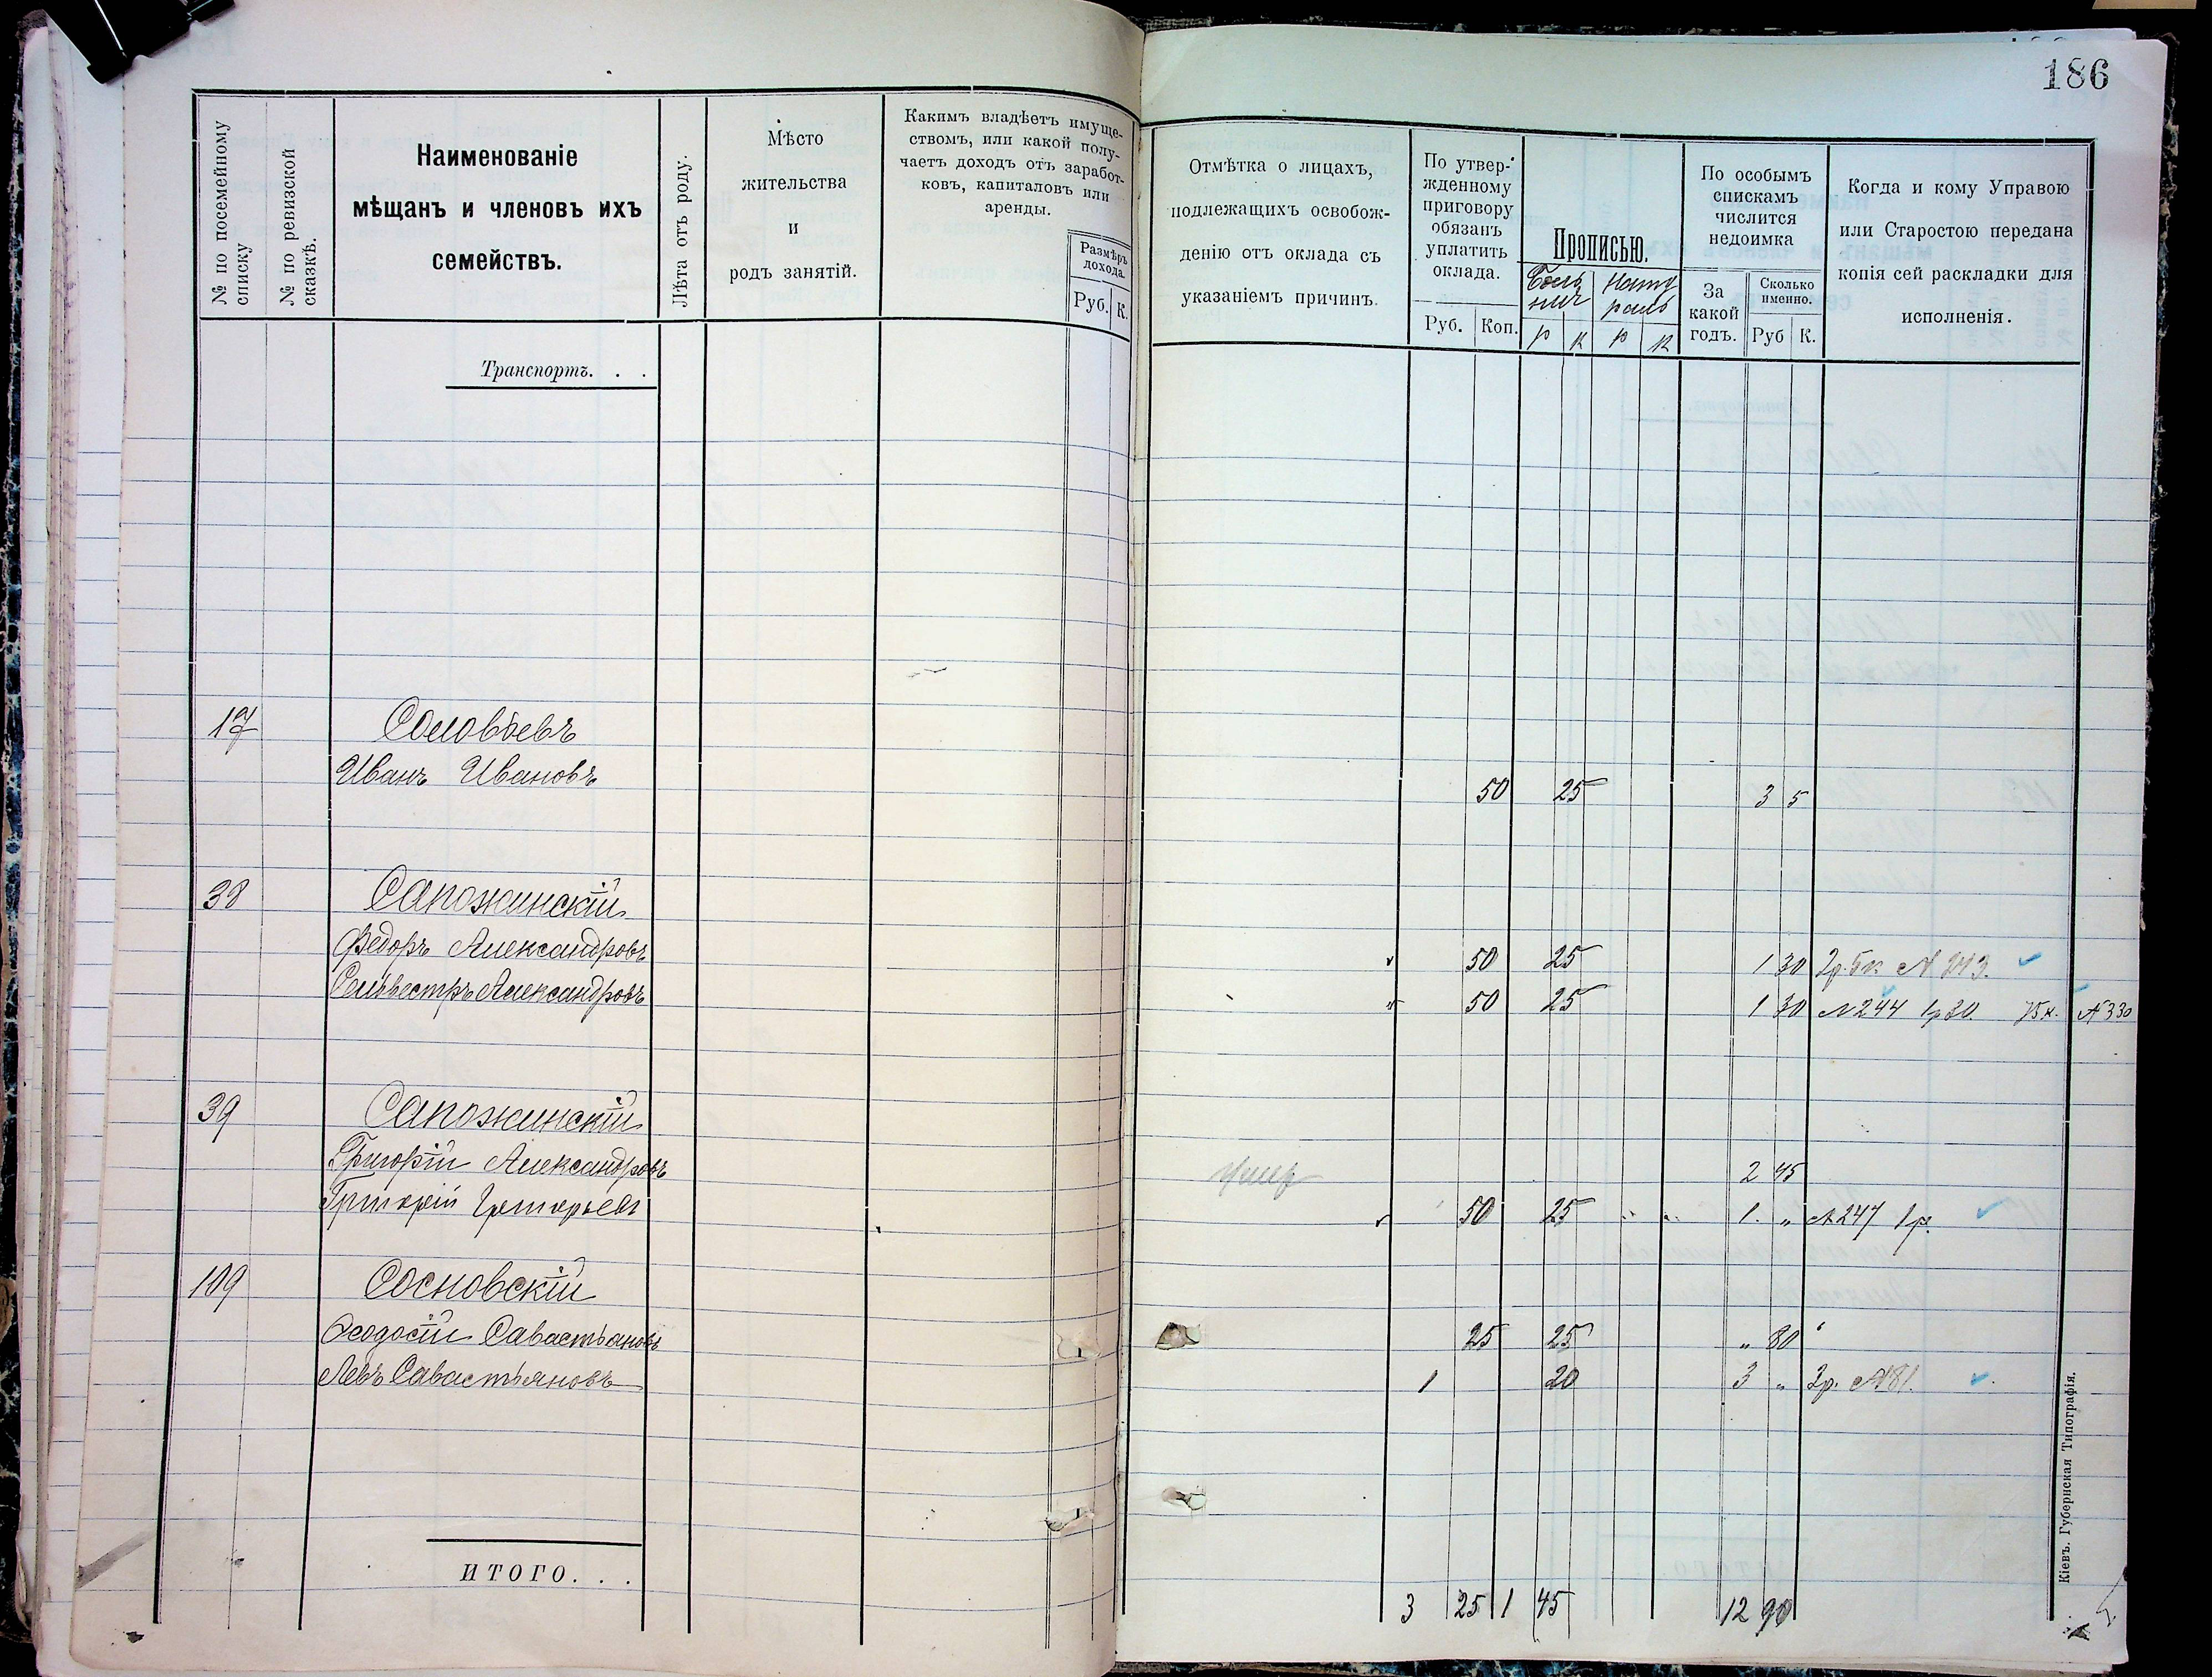 186
№ по посемейному списку
№ по ревизской сказкѣ.
Наименованіе
мѣщанъ и членовъ ихъ
семействъ.
Лѣта отъ роду.
Мѣсто
жительства
и
родъ занятій.
Какимъ владѣетъ имуще-
ствомъ, или какой полу-
чаетъ доходъ отъ заработ-
ковъ, капиталовъ или
аренды.
Размѣръ
дохода.
Руб. К.
Отмѣтка о лицахъ,
подлежащихъ освобож-
денію отъ оклада съ
указаніемъ причинъ.
По утвер-
жденному
приговору
обязанъ
уплатить
оклада.
Руб. Коп.
Прописью.
Боль Нату
нич раль
р к р к
По особымъ
спискамъ
числится
недоимка
За
какой
годъ.
Сколько
именно.
Руб К.
Когда и кому Управою
или Старостою передана
копія сей раскладки для
исполненія.
Транспортъ. . .
17 Соловьевъ
Иванъ Ивановъ 50 25 3 5
38 Сапожинскій
Федоръ Александровъ 50 25 1 30 2р. 5к № 243.
Сельвестръ Александровъ 50 25 1 30 №244 1р30. 75к. №330
39 Сапожинскій
Григорій Александровъ умер 2 45
Григорій Григорьевъ 50 25 " " 1. " №247 1р.
109 Сосновскій
Ѳеодосій Савастьяновъ 25 25 " 80
Левъ Савастьяновъ 1 20 3 " 3р. №81.
ИТОГО. . .
3 25 1 45 12 90
Кіевъ. Губернская Типографія.